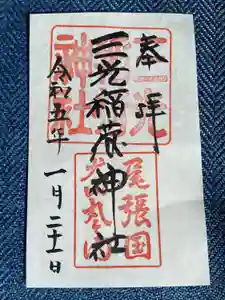 奉拝
三光稲荷神社
令和五年
一月二十一日
三光
神社
尾張国
犬山